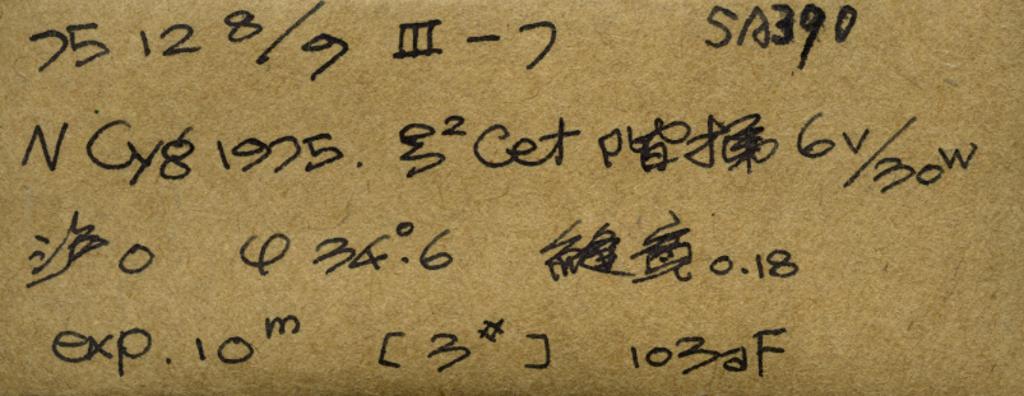 75 12 8/9 III-7 SA390
N Cyg 1975. ξ² Cet 階揚 6V/30W
沙 0 φ 34°.6 縦貫 0.18
exp. 10ᵐ [3*] 103aF